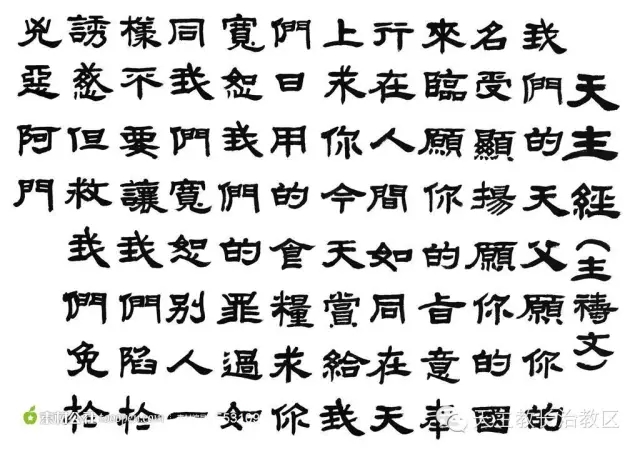 天主經(主禱文)
我們的天父願你的
名受顯揚願你的國
來臨願你的旨意奉
行在人間如同在天
上求你今天賞給我
們日用的食糧求你
寬恕我們的罪過如
同我們寬恕别人
樣不要讓我們陷於
誘惑但救我們免於
兇惡阿門
素材公社
天主教长治教区